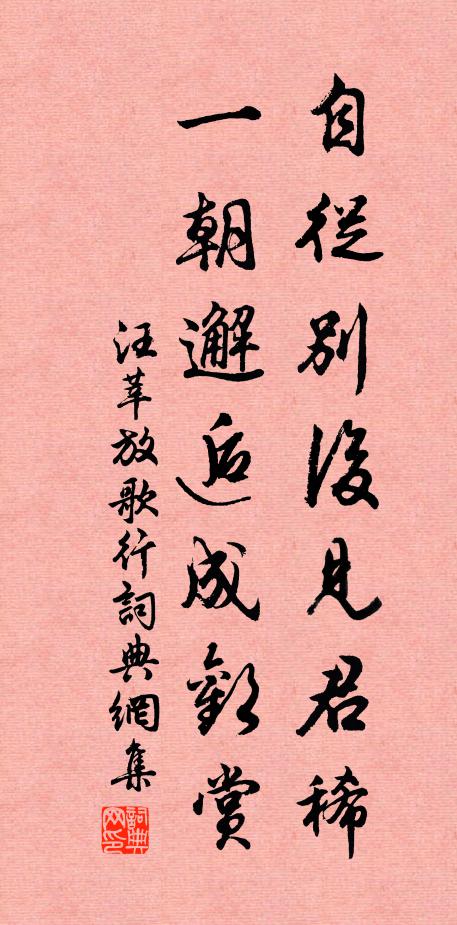 自從別後見君稀
一朝邂逅成歡賞
汪莘放歌行詞典網集
詞典网印